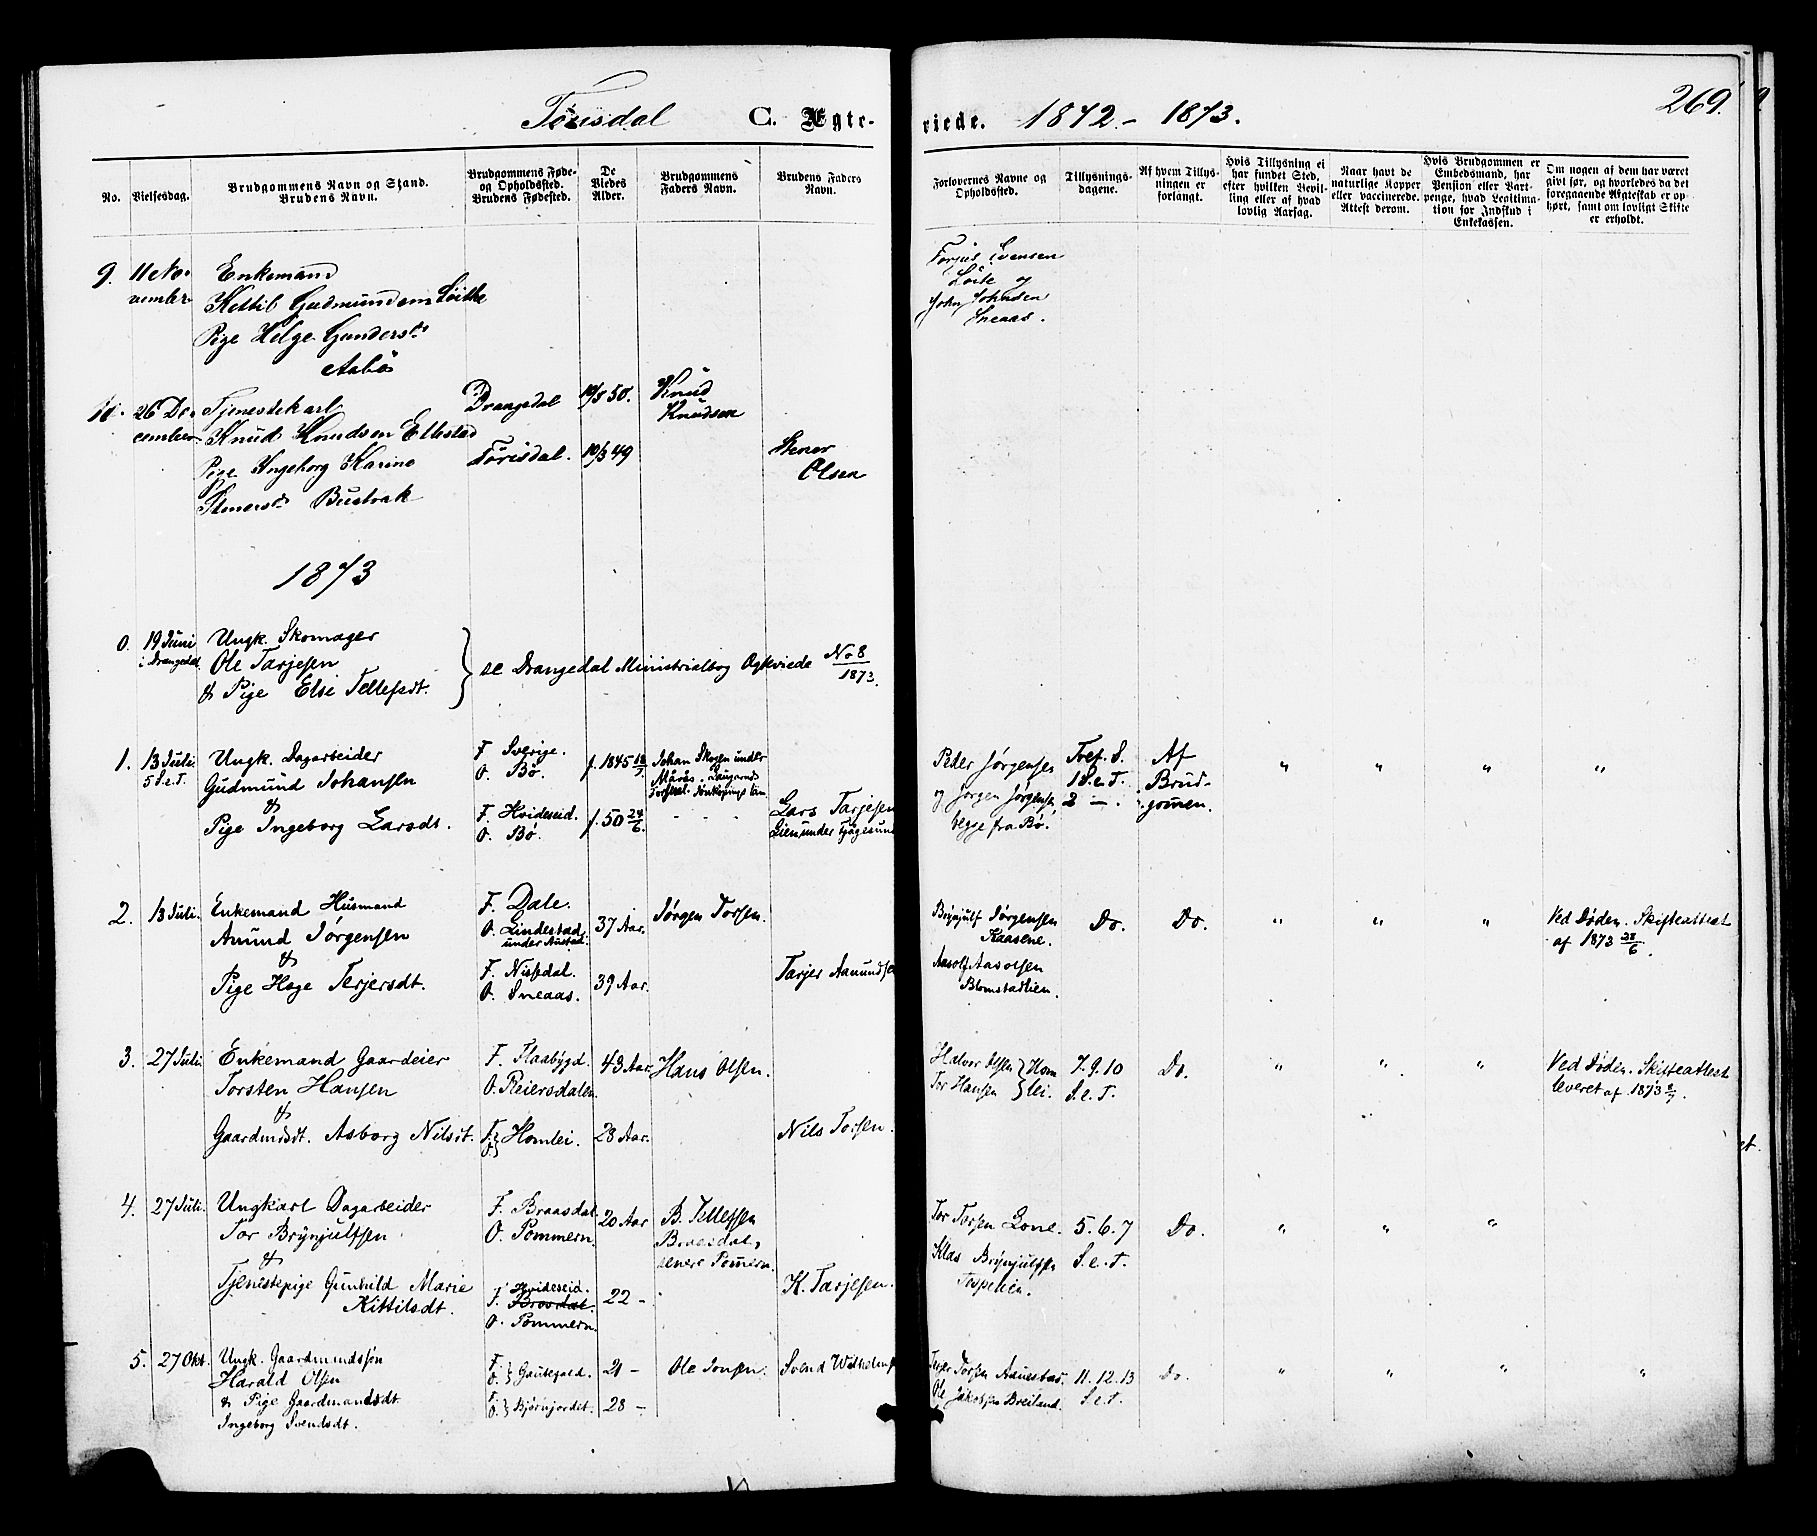 Tørisdal C. Ægte-
No.
Vielsesdag.
Brudgommens Navn og Stand.
Brudens Navn.
Brudgommens Føde-
og Opholdssted.
Brudens Fødested.
De
Viedes
Alder.
Brudgommens
Faders Navn.
Brudens Faders
Navn.
9. 11 No-
vember
Enkemand
Kettil Gudmundsen Löite
Pige Helge Gunders
Aabö
10. 26 De-
cember
Tjenestekarl
Knud Knudsen Ellestad
Pige Ingeborg Karine
Stenersd. Bustrak
Drangedal
Törisdal.
10/3 49
Knud
Knudsen
Stener
Olsen
1873
0. 19 Juni
i Drangedal
Ungk. Skomager
Ole Tarjesen
& Pige Else Tellefsdt.
se Drangedal Ministrialbog Ægteviede No 8
1873.
1. 13 Juli.
5 S. e. T.
Ungk. Dagarbeider
Gudmund Johansen
&
Pige Ingeborg Larsdt.
F. Sverige.
O. Bø.
F. Hvideseid.
O. Bø.
f. 1845
f. 50 24/6.
Johan Skogen under
Lars Tarjesen
Lien under Fjågesund
2. 13 Juli.
Enkemand Husmand
Amund Jørgensen
&
Pige Hæge Terjersdt.
F. Dale.
O. Lindestad
under Austad.
F. Nissedal.
O. Sneaas.
37 Aar.
39 Aar.
Jørgen Torsen.
Tarjer Aamundse
3. 27 Juli.
Enkemand Gaardeier
Torsten Hansen
&
Gaardmdsdt. Asborg Nilsdt.
F. Flaabygd.
O. Reiersdalen.
F. O. Homlei.
43 Aar.
28 Aar.
Hans Olsen.
Nils Torsen.
4. 27 Juli.
Ungkarl Dagarbeider
Tor Brynjulfsen
&
Tjenestepige Gunhild Marie
Kittilsdt.
F. Braasdal.
O. Pommern.
Hvideseid.
F. Brosdal.
O. Pommern.
20 Aar
22 -
B. Tellefsen
senere Pomern.
K. Tarjesen.
5. 27 Okt.
Ungk. Gaardmandssøn
Harald Olsen
& Pige Gaardmandsdt
Ingeborg Svendsdt.
F. O. Gautefald.
F. O. Bjørnjordet.
21 -
28 -
Ole Jonsen.
Svend Wilhelms
viede. 1872 - 1873.
269.
Forlovernes Navne og
Opholdssted.
Tillysnings-
dagene.
Af hvem Tillys-
ningen er
forlangt.
Hvis Tillysning ei
har fundet Sted,
efter hvilken Bevil-
ling eller af hvad
lovlig Aarsag.
Naar havt de
naturlige Kopper
eller vaccinerede.
Attest derom.
Hvis Brudgommen er
Embedsmand, har
Pension eller Vart-
penge, hvad Legitima-
tion for Indskud i
Enkekassen.
Om nogen af dem har været
givt før, og hvorledes da det
foregaaende Ægteskab er op-
hørt, samt om lovligt Skifte
er erholdt.
Torjus Svensen
Löite og
John Johnsen
Sneaas.
Peder Jørgensen
og Jørgen Jørgensen,
begge fra Bø.
Tref. S.
1 S. e. T.
2 — .
Af
Brud-
gomen.
" " " "
Brynjulf Jørgensen
Kaasene.
Aasolf Aasolsen
Blomstadlien.
Do. Do. " " "
Ved Døden. Skifteattest
af 1873 28/6.
Halvor Olsen
Tor Hansen
Hom
lei.
7. 9. 10
S. e. T.
Do. " " "
Ved Døden. Skifteattest
leveret af 1873
Tor Torsen Lone.
Klas Brynjulfsen
5. 6. 7
S. e. T.
Do. " " "
Terjer Torsen
Ole Jakobsen Breiland.
11. 12. 13
S. e. T.
Do. " " " "